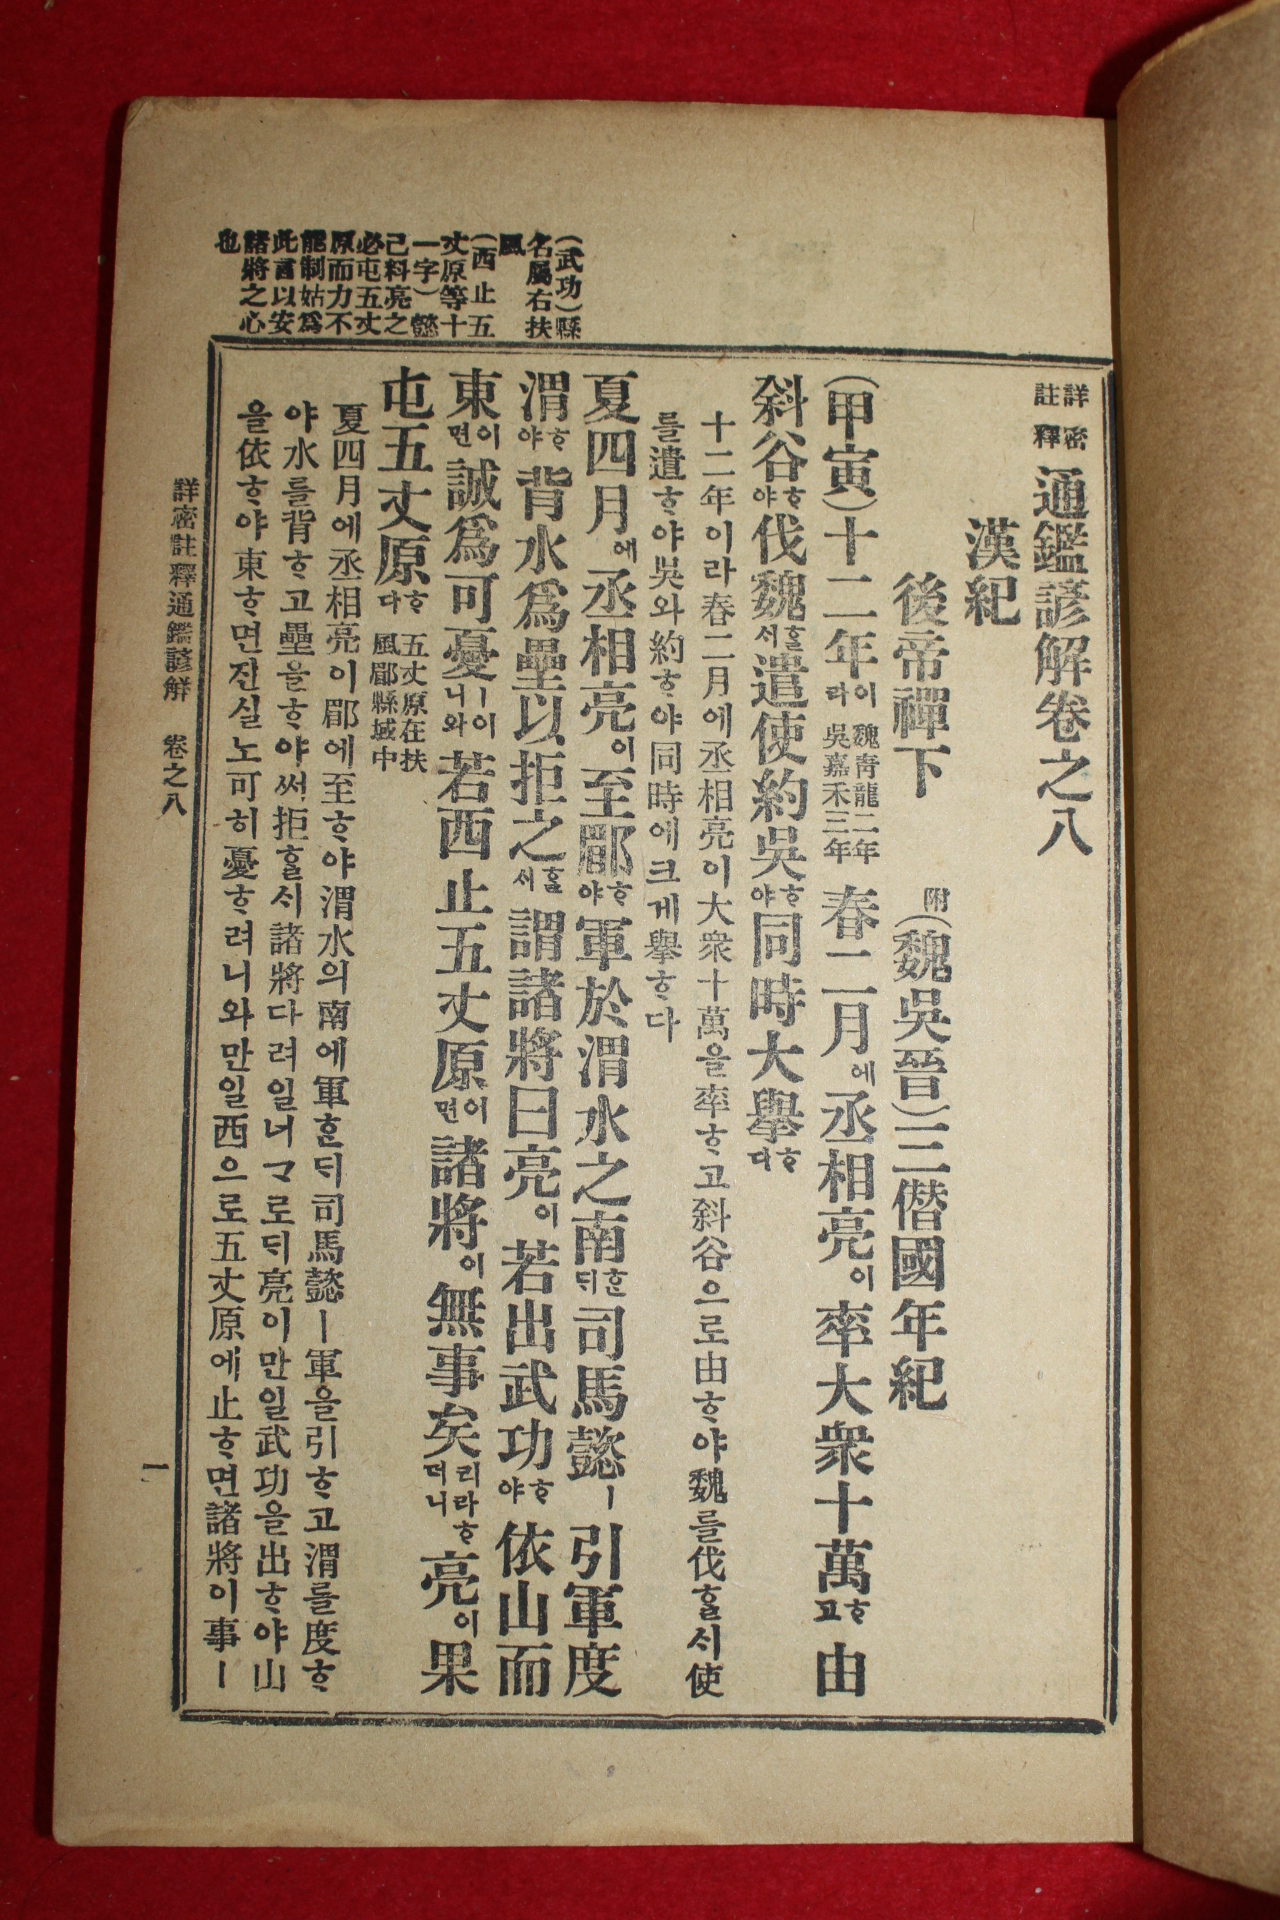 詳密註釋通鑑諺解卷之八
漢紀
後帝禪下 附(魏吳晉)三僭國年紀
(甲寅)十二年이라 魏靑龍二年 吳嘉禾三年 春二月에丞相亮이率大衆十萬ᄒᆞ고由
斜谷ᄒᆞ야伐魏ᄒᆞᆯᄉᆡ遣使約吳ᄒᆞ야同時大擧ᄒᆞ다
十二年이라春二月에丞相亮이大衆十萬을率ᄒᆞ고斜谷으로由ᄒᆞ야魏를伐ᄒᆞᆯᄉᆡ使
를遣ᄒᆞ야吳와約ᄒᆞ야同時에크게擧ᄒᆞ다
夏四月에丞相亮이至郿ᄒᆞ야軍於渭水之南ᄒᆞᆫᄃᆡ司馬懿ㅣ引軍度
渭ᄒᆞ야背水爲壘以拒之ᄒᆞᆯᄉᆡ謂諸將曰亮이若出武功ᄒᆞ야依山而
東이면誠爲可憂ㅣ이니와若西止五丈原이면諸將이無事矣리라ᄒᆞ더니亮이果
屯五丈原ᄒᆞ다 五丈原在扶 風郿縣城中
夏四月에丞相亮이郿에至ᄒᆞ야渭水의南에軍ᄒᆞᆫᄃᆡ司馬懿ㅣ軍을引ᄒᆞ고渭를度ᄒᆞ
야水를背ᄒᆞ고壘을ᄒᆞ야써拒ᄒᆞᆯᄉᆡ諸將다려일너ᄀᆞ로ᄃᆡ亮이만일武功을出ᄒᆞ야山
을依ᄒᆞ야東ᄒᆞ면진실노可히憂ᄒᆞ려니와만일西으로五丈原에止ᄒᆞ면諸將이事ㅣ
(武功)縣
名屬右扶
風
(西止五
丈原等十
一字)懿
己料亮之
必屯五丈
原而力不
能制姑爲
此言以安
諸將之心
也
詳密註釋通鑑諺解 卷之八
一